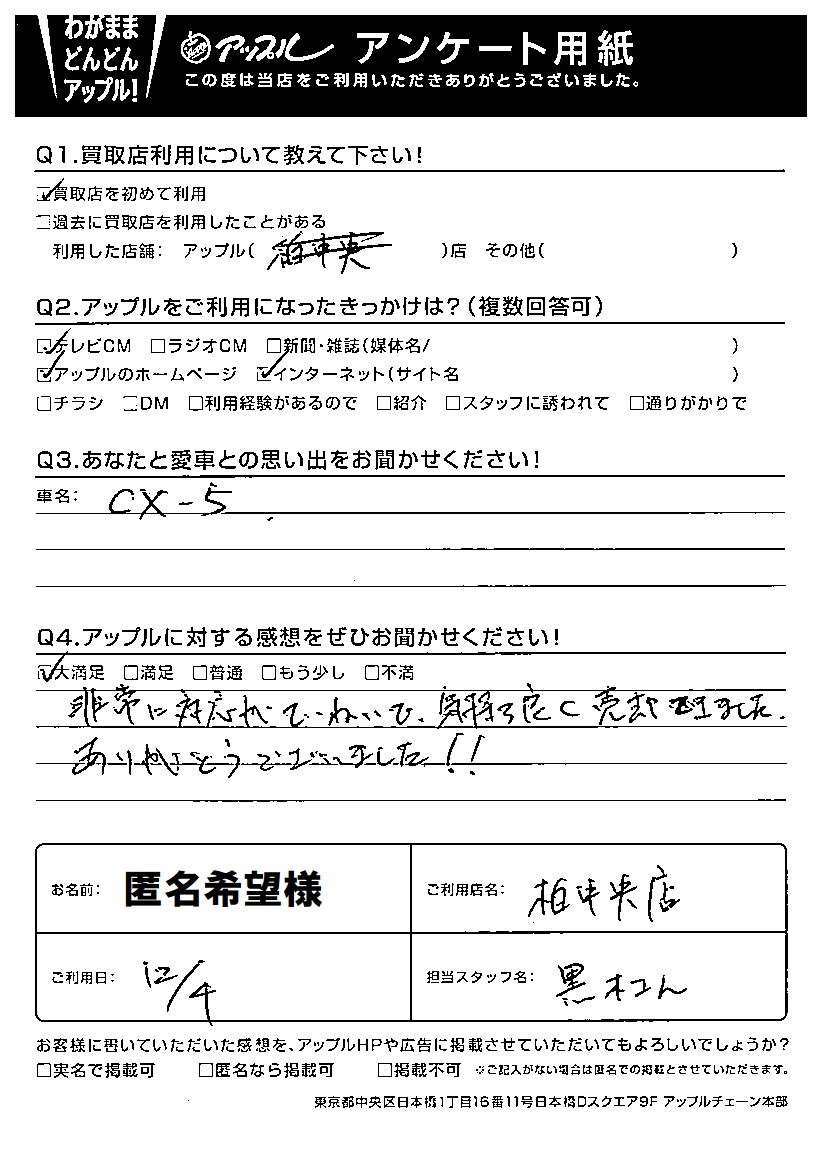 わがまま
どんどん
アップル!
アップル アンケート用紙
この度は当店をご利用いただきありがとうございました。
Q1.買取店利用について教えて下さい!
☑買取店を初めて利用
□過去に買取店を利用したことがある
利用した店舗: アップル( 柏中央 )店 その他( )
Q2.アップルをご利用になったきっかけは?(複数回答可)
☑テレビCM □ラジオCM □新聞・雑誌(媒体名/ )
☑アップルのホームページ ☑インターネット(サイト名 )
□チラシ □DM □利用経験があるので □紹介 □スタッフに誘われて □通りがかりで
Q3.あなたと愛車との思い出をお聞かせください!
車名: CX-5
Q4.アップルに対する感想をぜひお聞かせください!
☑大満足 □満足 □普通 □もう少し □不満
非常に対応がていねいで、気持ち良く売却できました.
ありがとうございました!!
お名前: 匿名希望様
ご利用店名: 柏中央店
ご利用日: 12/4
担当スタッフ名: 黒木さん
お客様に書いていただいた感想を、アップルHPや広告に掲載させていただいてもよろしいでしょうか?
□実名で掲載可 □匿名なら掲載可 □掲載不可 ※ご記入がない場合は匿名での掲載とさせていただきます。
東京都中央区日本橋1丁目16番11号日本橋Dスクエア9F アップルチェーン本部